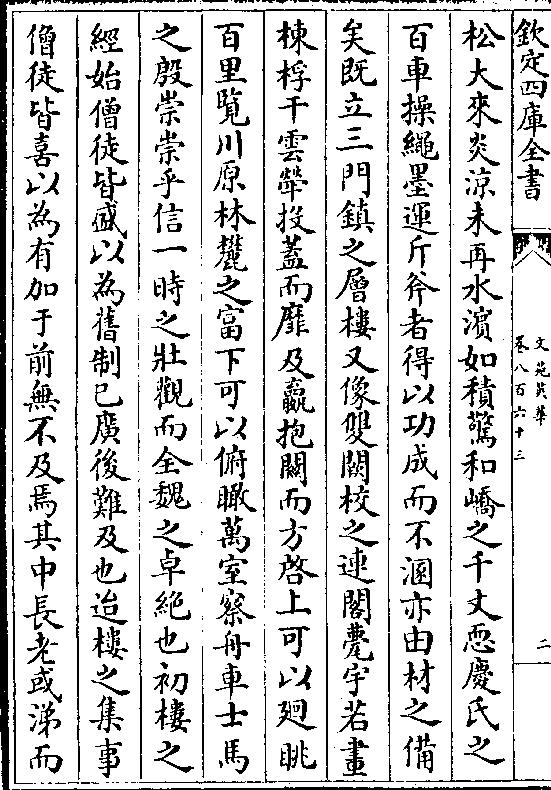 欽定四庫全書
文苑英華
卷八百六十三
二
松大來炎涼未再水濱如積驚和嶠之千丈恧慶氏之
百車操繩墨運斤斧者得以功成而不溷亦由材之備
矣既立三門鎮之層樓又像雙闕校之連閣甍宇若畫
棟桴干雲犖投蓋而靡及羸抱關而方啓上可以廻眺
百里覧川原林麓之富下可以俯瞰萬室察舟車士馬
之殷崇崇乎信一時之壯觀而全魏之卓絶也初樓之
經始僧徒皆慼以為舊制已廣後難及也迨樓之集事
僧徒皆喜以為有加于前無不及焉其中長老或涕而